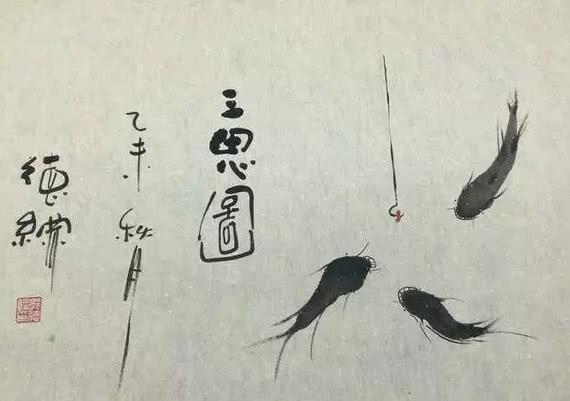 三思圖
乙未秋月
德